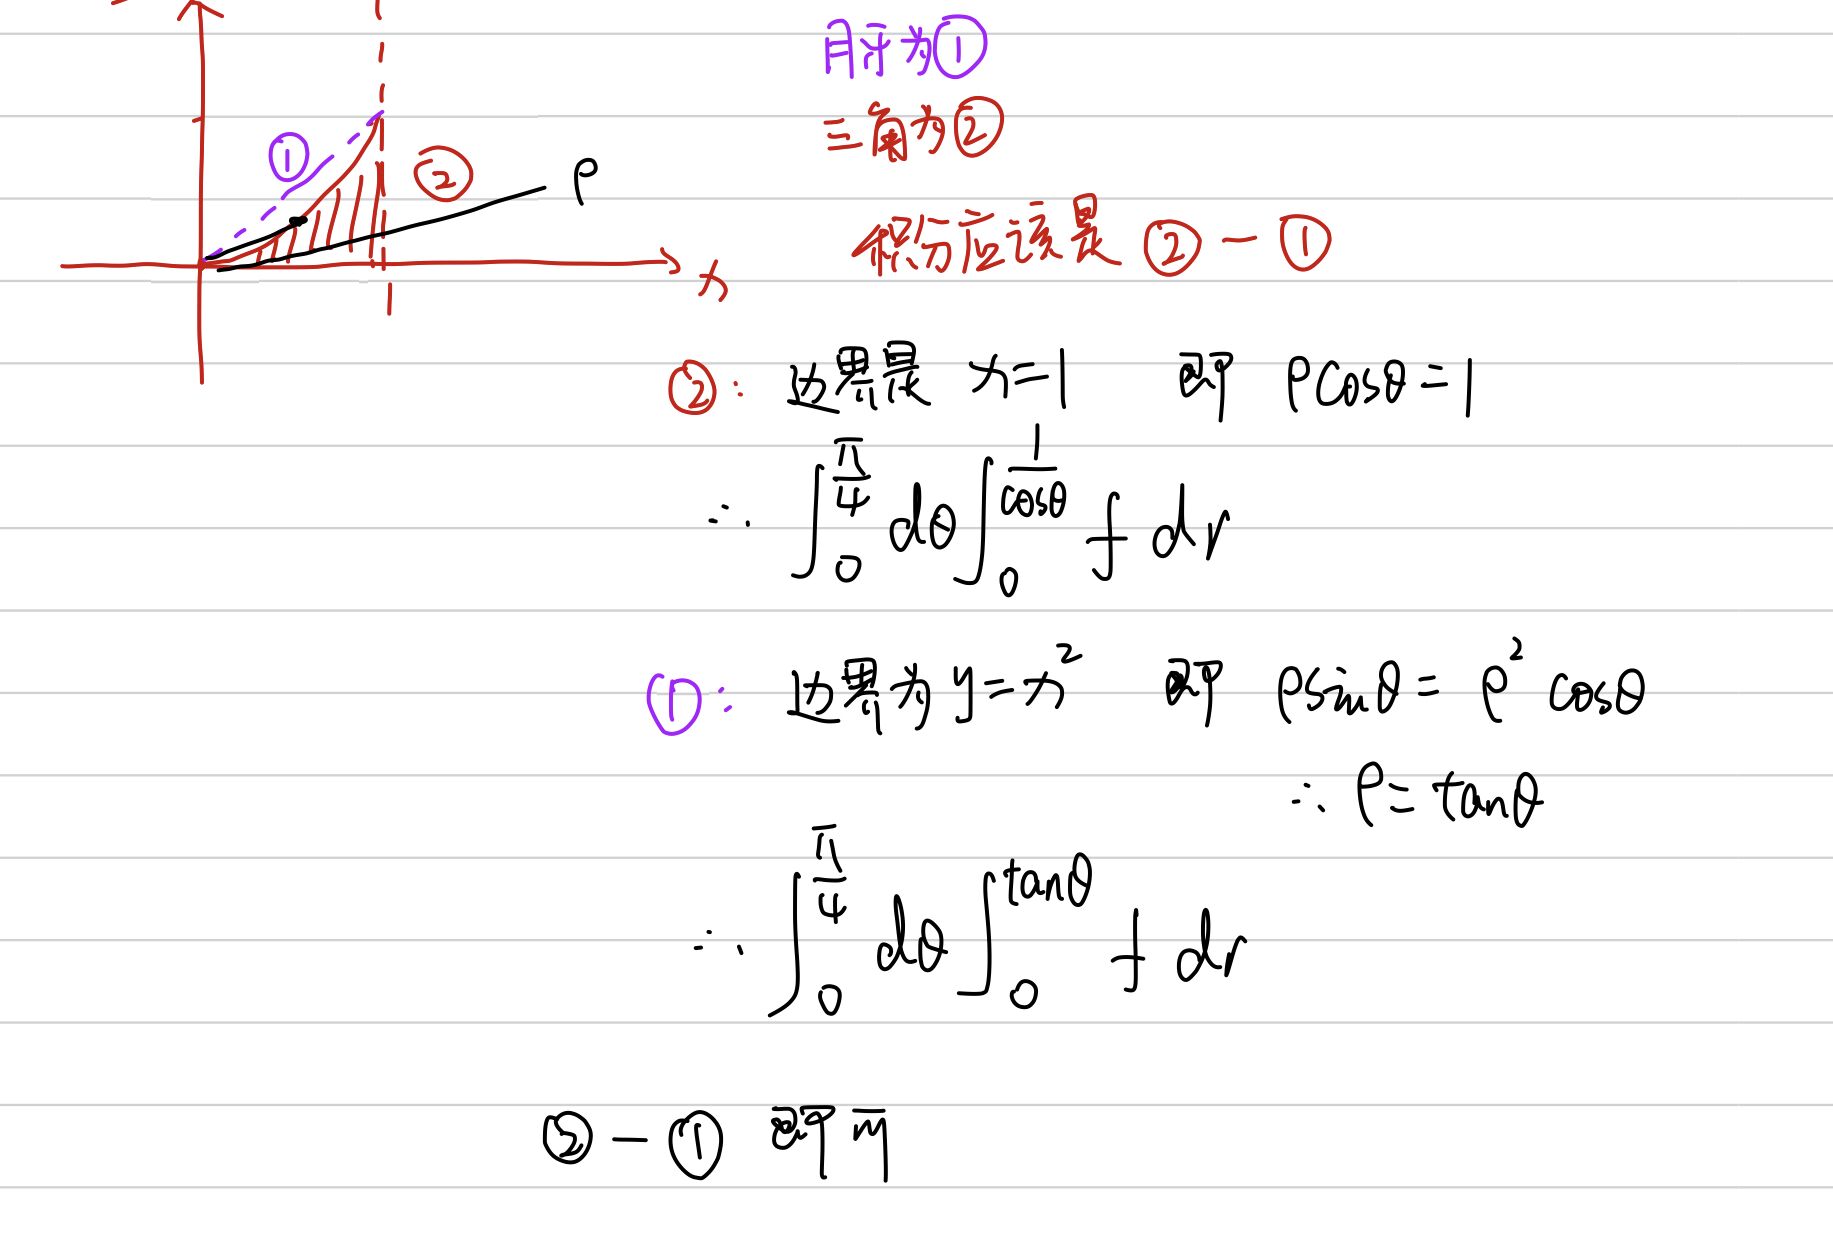 月牙为①
三角为②
① ② ρ
积分应该是 ② - ①
x
②: 边界是 x=1 即 ρcosθ=1
∴ ∫_0^{π/4} dθ ∫_0^{1/cosθ} f dr
①: 边界为 y=x² 即 ρsinθ = ρ² cosθ
∴ ρ = tanθ
∴ ∫_0^{π/4} dθ ∫_0^{tanθ} f dr
② - ① 即可